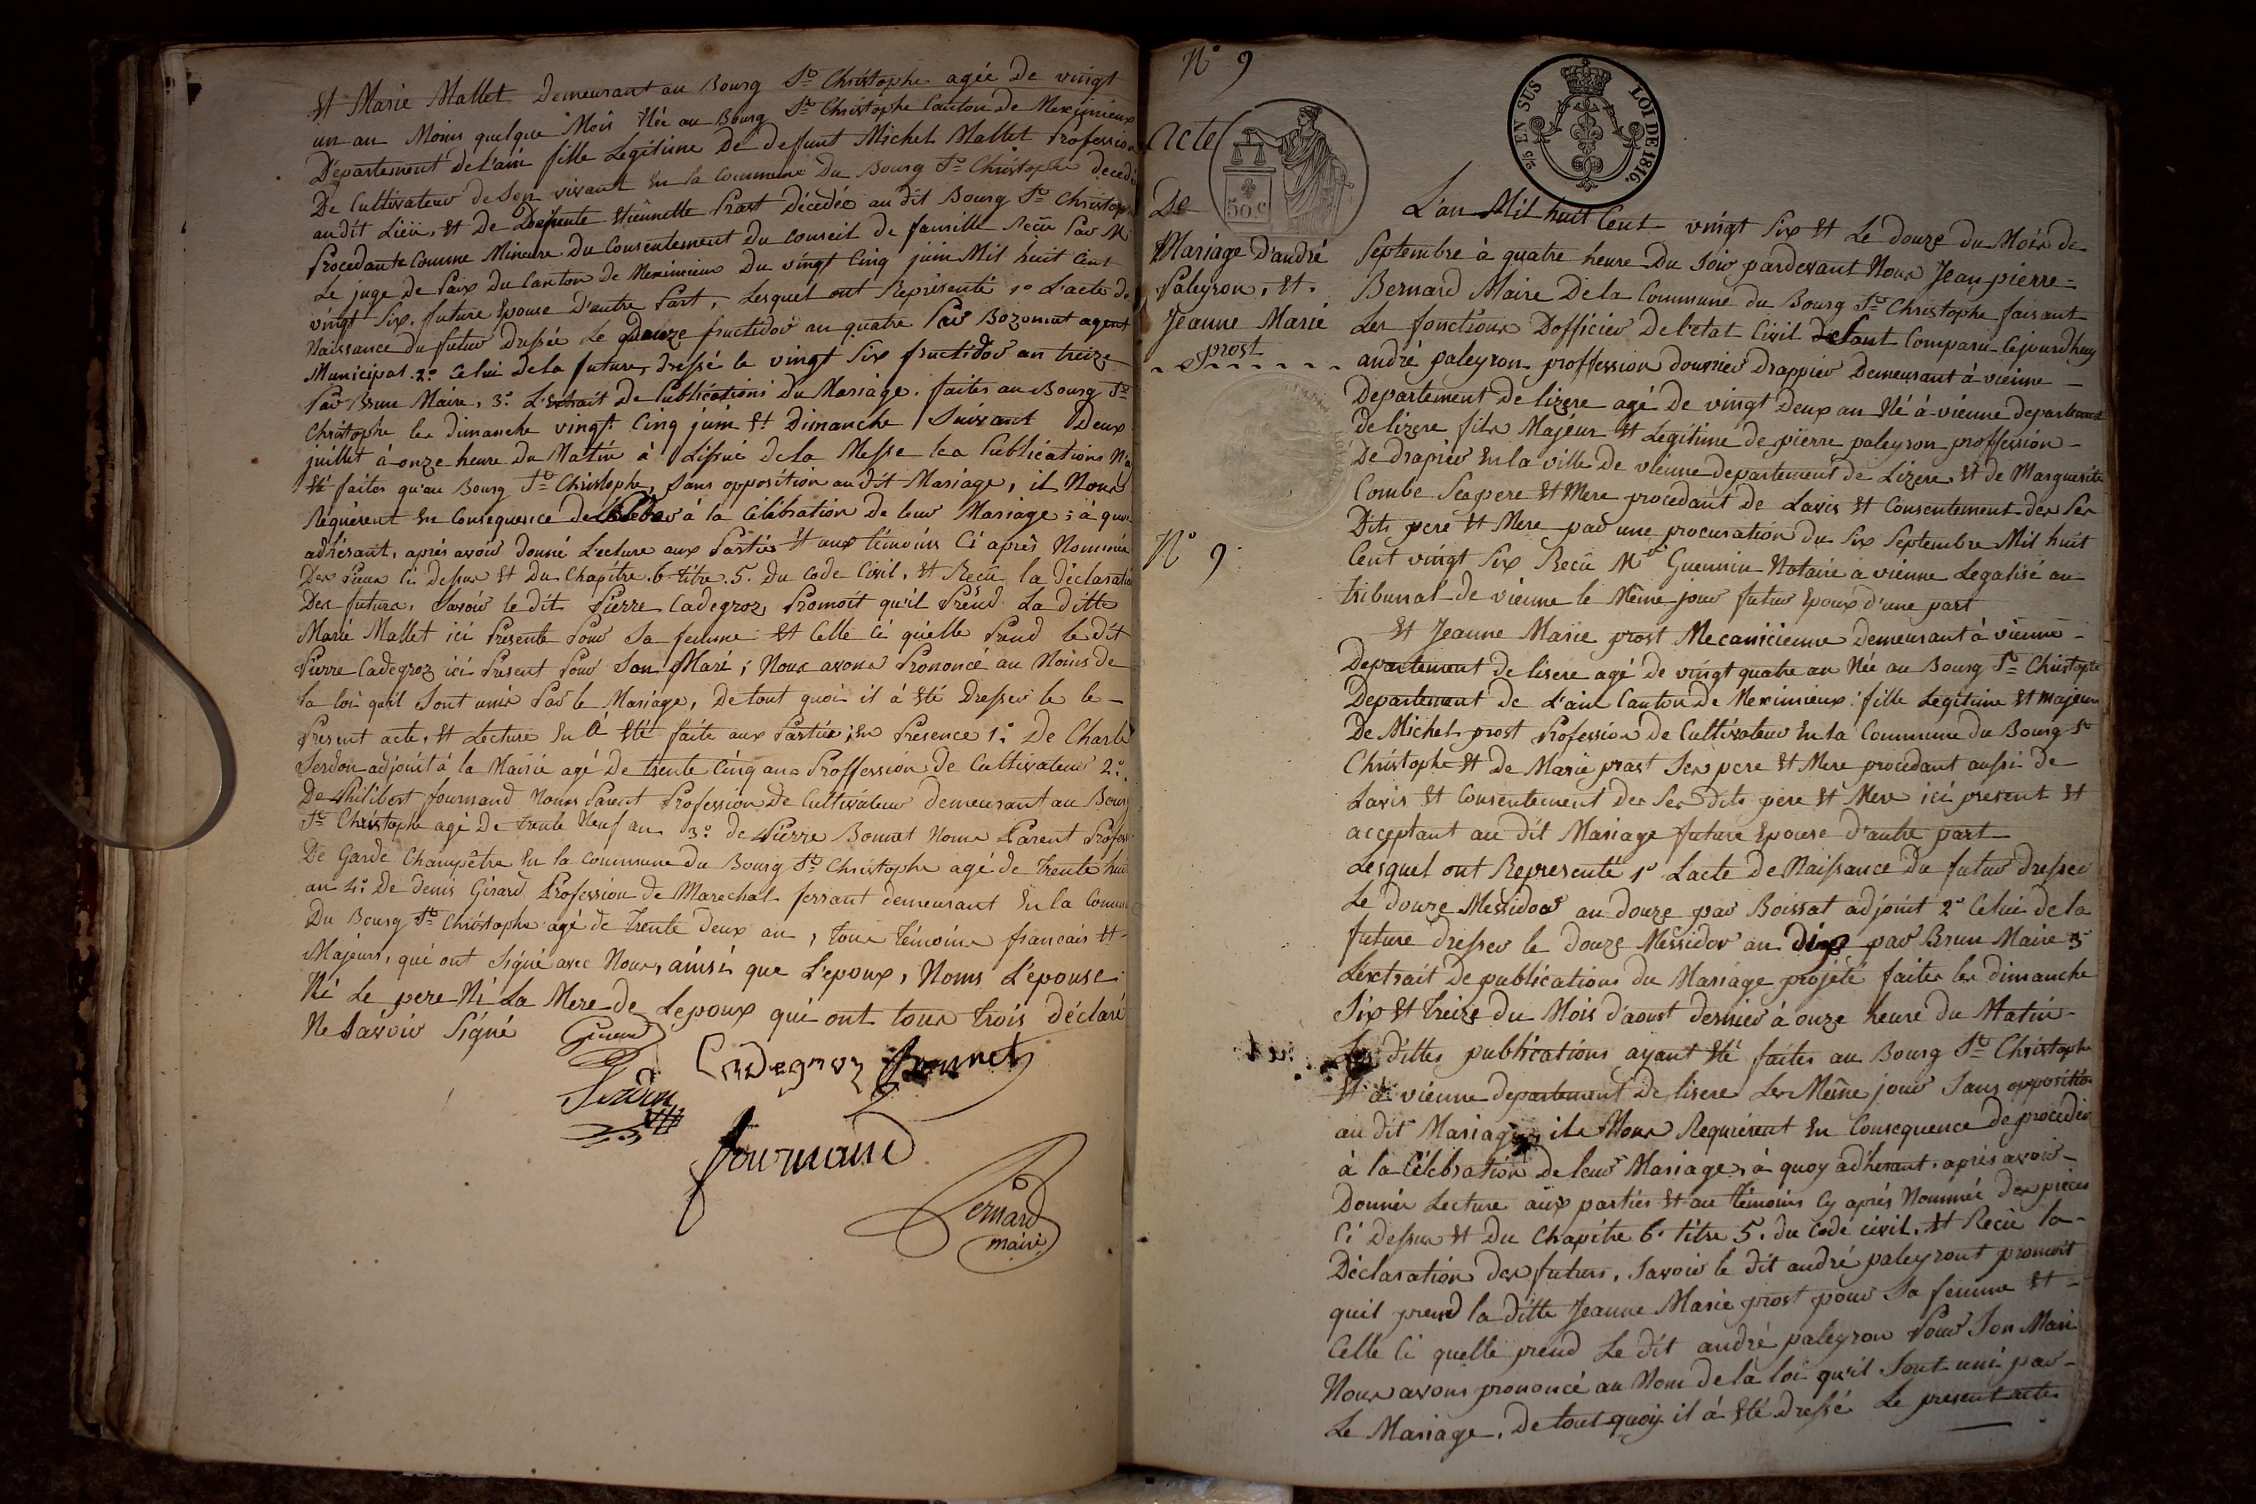 Et Marie Mallet Demeurant au Bourg St Christophe agée De vingt
un an Moins quelque Mois Née au Bourg St Christophe Canton de Meximieux
Département de l'ain fille Legitime De defunt Michel Mallet Profession
De Cultivateur de Son vivant En la Commune Du Bourg St Christophe decedé
au dit Lieu, Et De Defunte Etiennette Prost Décédée au dit Bourg St Christophe
Procedante Comme Mineure Du Consentement Du Conseil de famille Reçu Par Mr
Le juge De Paix Du Canton de Meximieux Du vingt Cinq juin Mil huit Cent
vingt Six. future Epouse D'autre Part, Lesquel ont Représenté 1o L'acte de
Naissance Du futur Dressée Le quinze fructidor an quatre Par Bozonnet agent
Municipal. 2o Celui De la future, dressé le vingt Six fructidor an treize
Par Brun Maire, 3o L'Extrait De Publications Du Mariage. faites au Bourg St
Christophe les dimanche vingt Cinq juin Et Dimanche Suivant Deux
juillet à onze heure Du Matin à L'issue de la Messe les Publications N'a
Eté faites qu'au Bourg St Christophe, Sans opposition au dit Mariage, il Nous
Requèrent En Consequence de à la Célébration De leur Mariage; à quoi
adhérant, après avoir donné Lecture aux Parties Et aux témoins Ci après Nommés
Des Pieces Ci Dessus Et Du Chapitre. 6. titre. 5. du Code Civil. Et Reçu la déclaration
Des futurs, Savoir le dit Pierre Cadegroz Promoit qu'il Prend La ditte
Marie Mallet ici Presente Pour Sa femme Et Celle Ci qu'elle Prend le dit
Pierre Cadegroz ici Present Pour Son Mari; Nous avons Prononcé au Noms de
la loi qu'il Sont unis Par le Mariage, De tout quoi il à Eté Dresser le le
Present acte, Et Lecture En à Eté faite aux Parties; En Présence 1o De Charle
Serdon adjoint à la Mairie agé De trente Cinq ans Proffession De Cultivateur 2o.
De Philibert fournand Noms Parent Profession De Cultivateur demeurant au Bourg
St Christophe agé De trente Neuf an 3o de Pierre Bonnet Noms Parent Profess
De Garde Champêtre En la Commune du Bourg St Christophe agé de trente huit
an 4o De Denis Girard Profession de Marechal ferrant demeurant En la Commune
Du Bourg St Christophe agé de trente deux an, tous témoins francais Et
Majeurs, qui ont Signé avec Nous, ainsi que L'epoux, Noms L'epouse
Ni Le pere Ni La Mere de Lepoux qui ont tous trois déclaré
Ne Savoir Signé
Girard
Cadegroz Bonnet
Serdon
fournand
Bernard
maire
No 9
acte
De
Mariage D'andré
Paleyron, Et.
Jeanne Marie
prost
No 9
50 c
2/5 EN SUS LOI DE 1816.
L'an Mil huit Cent vingt Six Et Le douze du Mois de
Septembre à quatre heure Du Soir pardevant Nous Jean pierre
Bernard Maire De la Commune du Bourg St Christophe faisant
Les fonctions D'officier De l'etat Civil Comparu Cejourdhuy
andré paleyron proffession d'ourrier drappier Demeurant à vienne
Departement de lizere agé De vingt Deux an Né à vienne departement
de lizere fils Majeur Et Legitime de pierre paleyron proffession
De drapier En la ville de vienne departement de Lizere, Et de Marguerite
Combe Ses pere Et Mere procedant de Lavis Et Consentement des Ses
Dits pere Et Mere par une procuration du Six Septembre Mil huit
Cent vingt Six Reçu Mr Guennin Notaire a vienne Legalisé au
tribunal de vienne le Même jour futur Epoux d'une part
Et Jeanne Marie prost Mecanicienne Demeurant à vienne
Departement de lisere agé de vingt quatre an Née au Bourg St Christophe
Departement de L'ain Canton de Meximieux: fille Legitime Et majeure
De Michel prost Profession de Cultivateur En la Commune du Bourg St
Christophe Et de Marie prost Ses pere Et Mere procedant aussi de
Lavis Et Consentement des Ses dits pere Et Mere ici present Et
acceptant au dit Mariage future Epouse D'autre part
Lesquel ont Representé 1o Lacte de Naissance du futur dresser
Le douze Messidor an douze par Boissat adjoint 2o Celui de la
future dresser le douze Messidor an dix par Brun Maire 3o
L'extrait de publications du Mariage projeté faites les dimanche
Six Et treize du Mois d'aoust dernier à onze heure du Matin
Les dittes publications ayant Eté faites au Bourg St Christophe
Et à vienne departement de lisere Les Même jour Sans opposition
au dit Mariage, ils Nous Requièrent En Consequence de proceder
à la Célébration de leur Mariage, à quoy adherant, après avoir
Donner Lecture aux parties Et au témoins Cy après Nommée des pieces
Ci Dessus Et Du Chapitre 6. titre 5. du Code civil. Et Reçu la
Déclaration des futurs. Savoir le dit andré paleyront promoit
quil prend la ditte Jeanne Marie prost pour Sa femme Et
Celle Ci quelle prend Le dit andré paleyron Pour Son Mari
Nous avons prononcé au Nom de la loi qu'il Sont uni par
Le Mariage. De tout quoy il à Eté dressé Le present acte